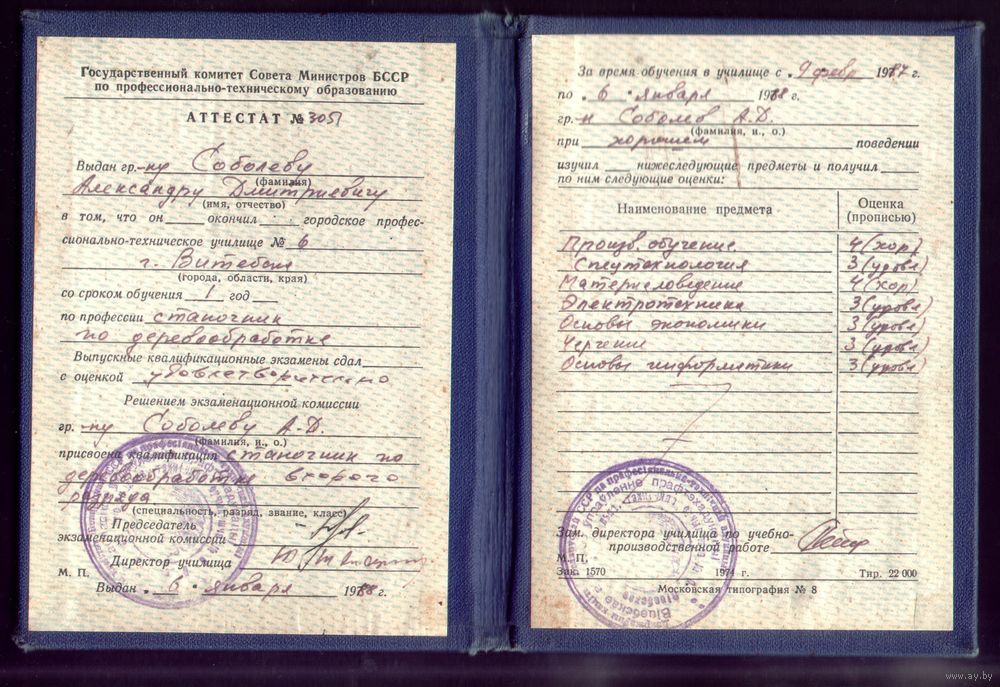 Государственный комитет Совета Министров БССР
по профессионально-техническому образованию
АТТЕСТАТ № 3051
Выдан гр.-ну Соболеву
(фамилия)
Александру Дмитриевичу
(имя, отчество)
в том, что он окончил городское профес-
сионально-техническое училище № 6
г. Витебск
(города, области, края)
со сроком обучения 1 год
по профессии станочник
по деревообработке
Выпускные квалификационные экзамены сдал
с оценкой удовлетворительно
Решением экзаменационной комиссии
гр.-ну Соболеву А.Д.
(фамилия, и., о.)
присвоена квалификация станочник по
деревообработке второго
разряда
(специальность, разряд, звание, класс)
Председатель
экзаменационной комиссии
Директор училища
М. П.
Выдан 6 января 1988 г.
За время обучения в училище с 9 февр 1987 г.
по 6 января 1988 г.
гр.-н Соболев А.Д.
(фамилия, и., о.)
при хорошем поведении
изучил нижеследующие предметы и получил
по ним следующие оценки:
Наименование предмета Оценка (прописью)
Произв. обучение 4 (хор)
Спецтехнология 3 (удовл)
Материаловедение 4 (хор)
Электротехника 3 (удовл)
Основы экономики 3 (удовл)
Черчение 3 (удовл)
Основы информатики 3 (удовл)
Зам. директора училища по учебно-
производственной работе
М. П.
Зак. 1570 1974 г. Тир. 22 000
Московская типография № 8
www.ay.by